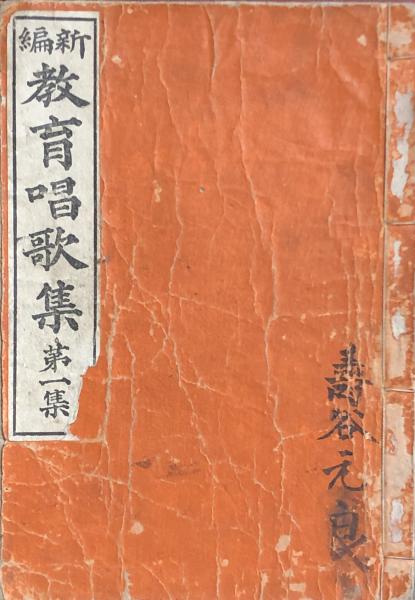 新編
教育唱歌集 第一集
壽谷元良